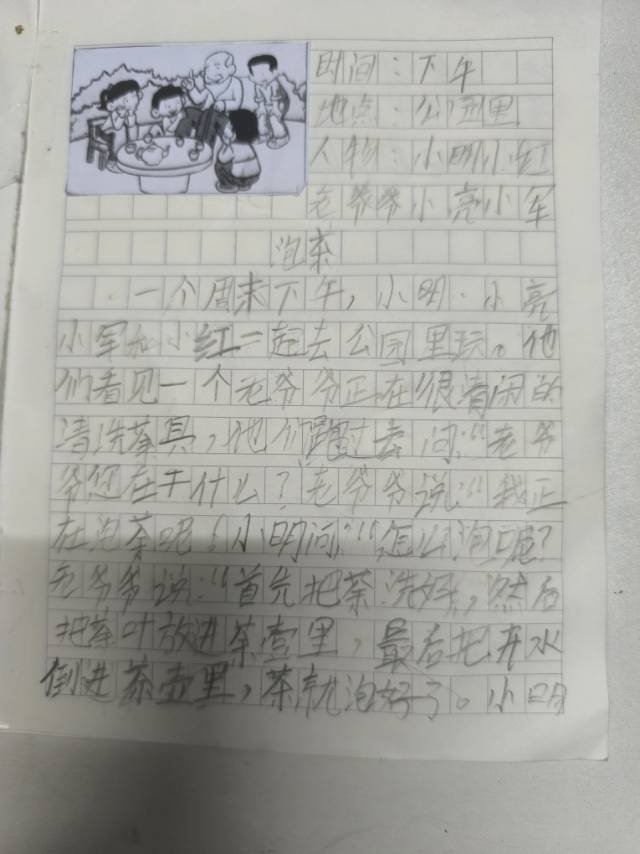 时间:下午
地点:公园里
人物:小明小红
老爷爷小亮小军
泡茶
一个周末下午,小明.小亮
小军和小红一起去公园里玩。他
们看见一个老爷爷正在很清闲的
清洗茶具,他们跑过去问:“老爷
爷您在干什么?老爷爷说:“我正
在泡茶呢!小明问:“怎么泡呢?
老爷爷说:“首先把茶洗好,然后
把茶叶放进茶壶里,最后把开水
倒进茶壶里,茶就泡好了。小明